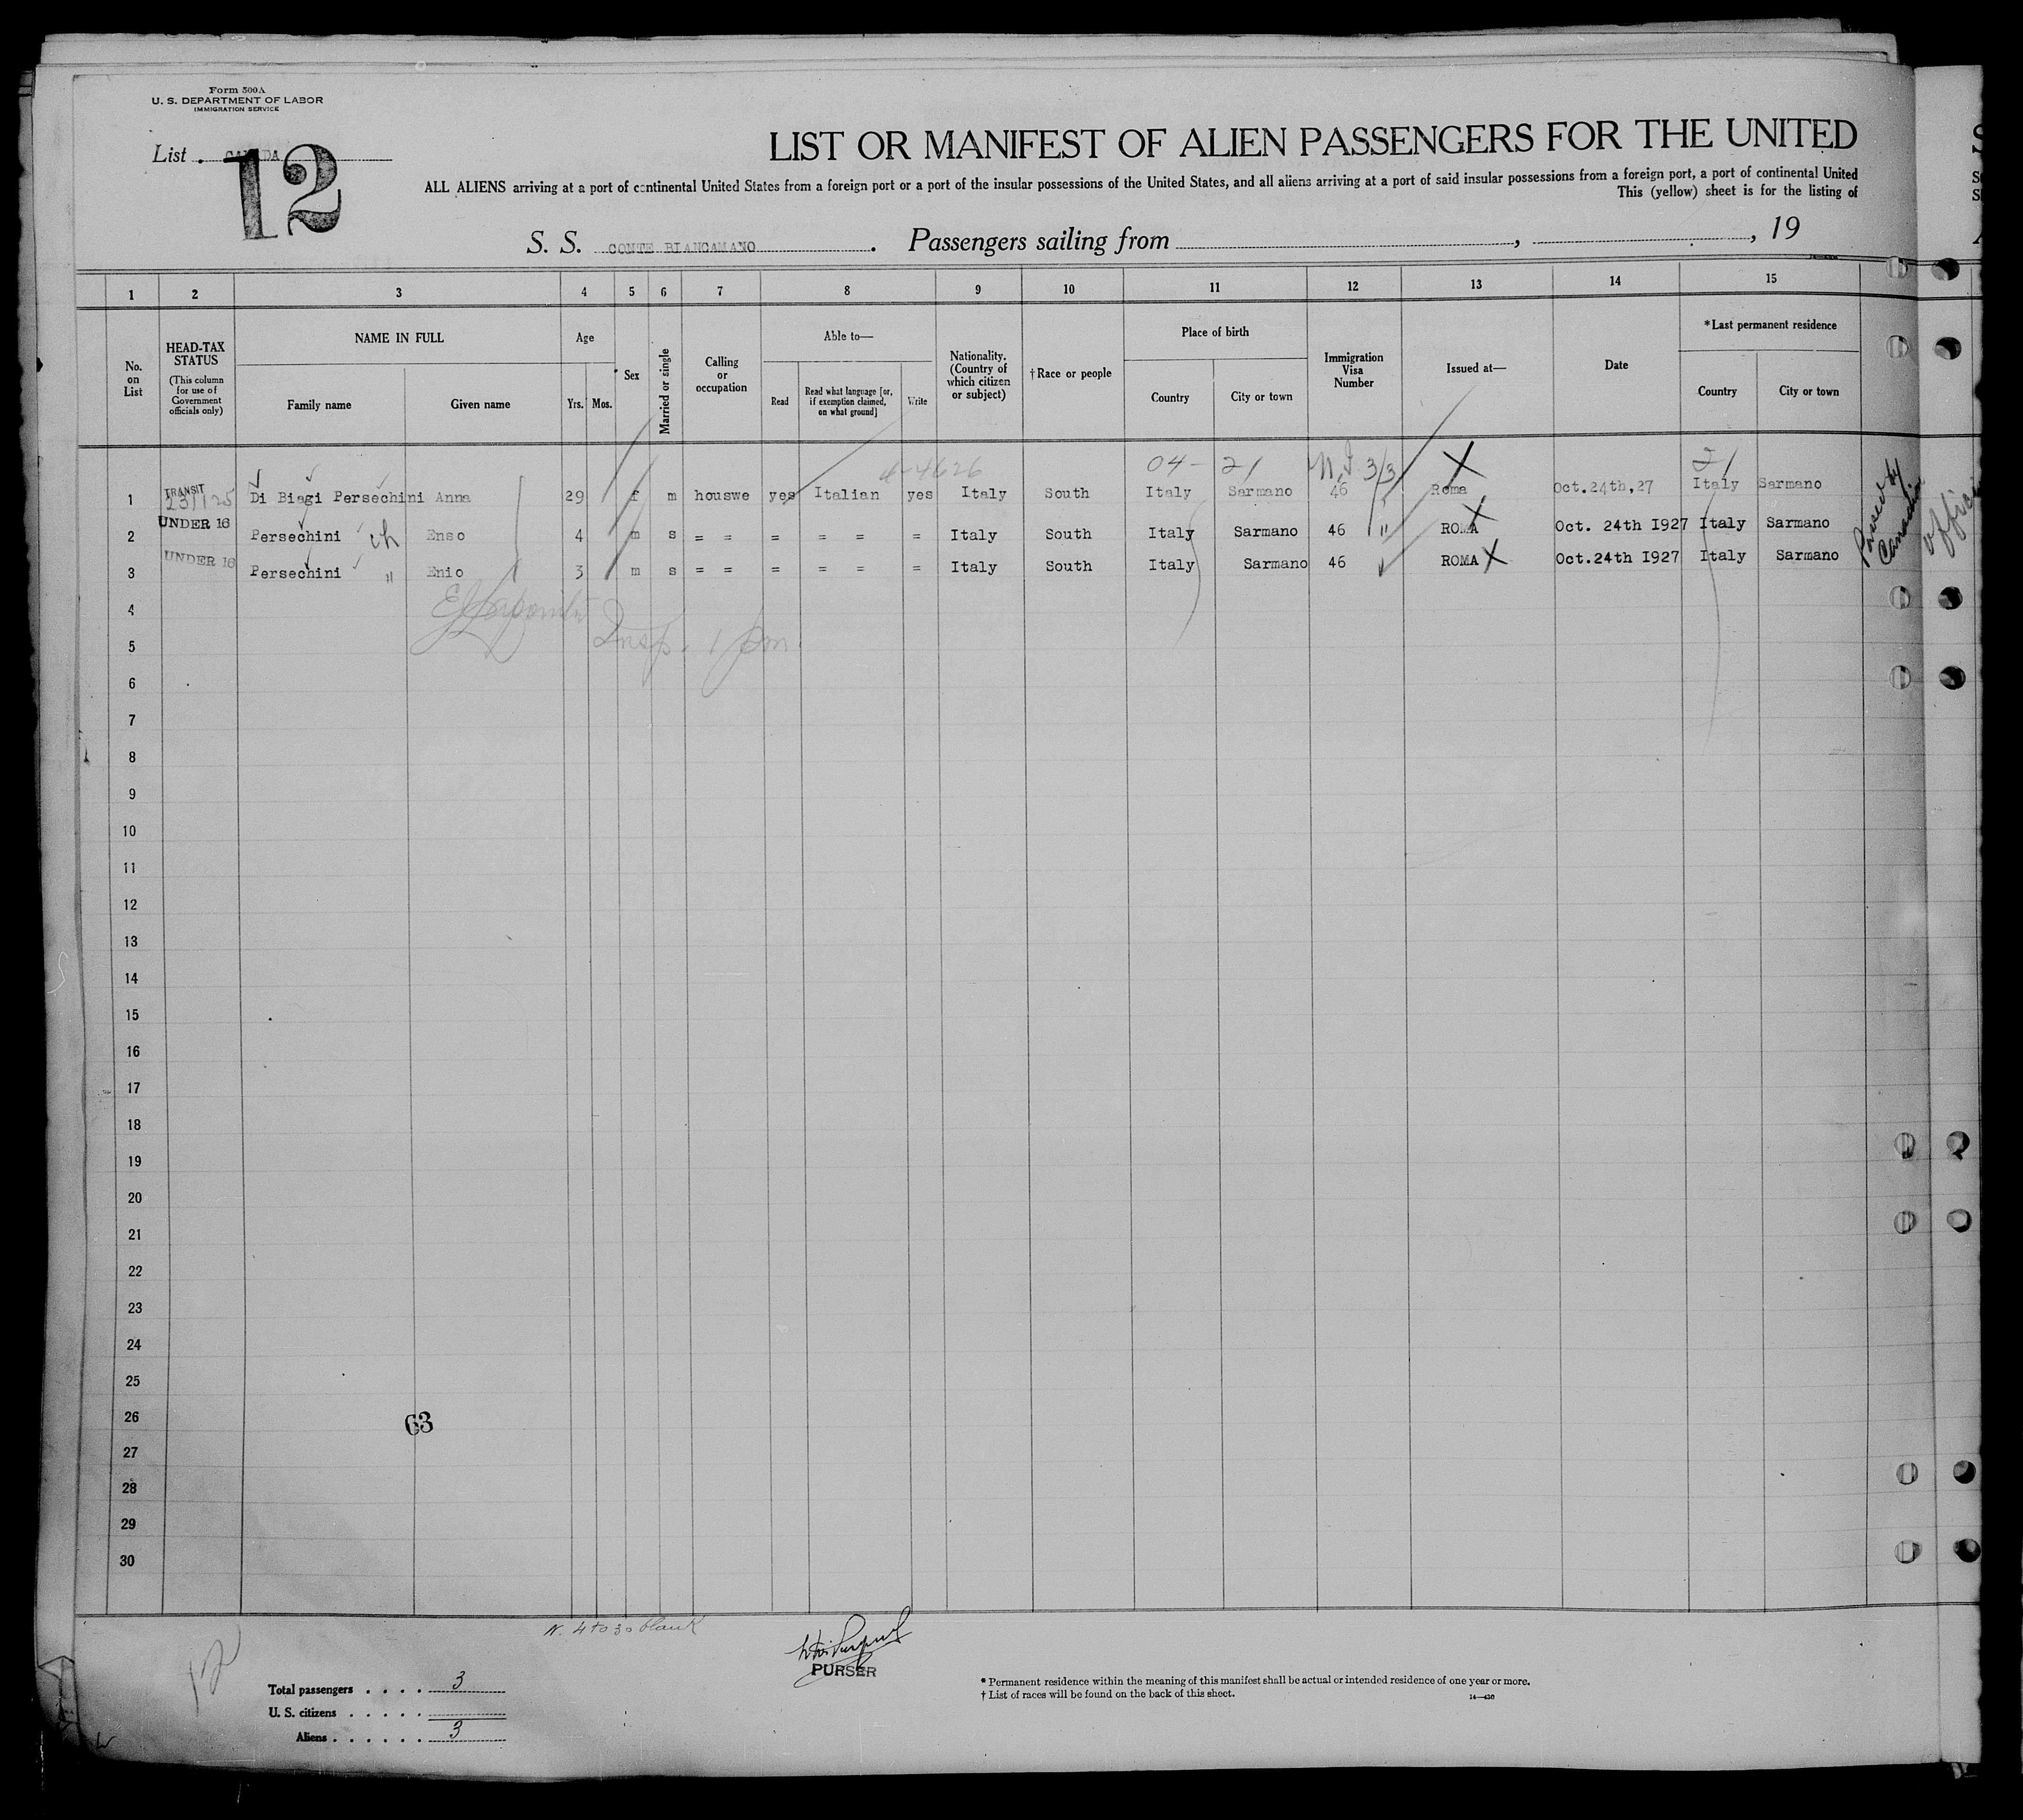 Form 500A
U. S. DEPARTMENT OF LABOR
IMMIGRATION SERVICE
List CANADA
12
LIST OR MANIFEST OF ALIEN PASSENGERS FOR THE UNITED
ALL ALIENS arriving at a port of continental United States from a foreign port or a port of the insular possessions of the United States, and all aliens arriving at a port of said insular possessions from a foreign port, a port of continental United
This (yellow) sheet is for the listing of
S. S. CONTE BIANCAMANO. Passengers sailing from , , 19
1 2 3 4 5 6 7 8 9 10 11 12 13 14 15
No. on List
HEAD-TAX STATUS
(This column for use of Government officials only)
NAME IN FULL
Family name Given name
Age
Yrs. Mos.
Sex
Married or single
Calling or occupation
Able to—
Read
Read what language [or, if exemption claimed, on what ground]
Write
Nationality. (Country of which citizen or subject)
†Race or people
Place of birth
Country City or town
Immigration Visa Number
Issued at—
Date
*Last permanent residence
Country City or town
4-4626 04- 21 3/3 X 21
TRANSIT
1 Di Biagi Persechini Anna 29 f m houswe yes Italian yes Italy South Italy Sarmano 46 Roma Oct.24th,27 Italy Sarmano
UNDER 16
2 Persechini ch Enso 4 m s = = = = = = Italy South Italy Sarmano 46 " ROMA X Oct. 24th 1927 Italy Sarmano
UNDER 16
3 Persechini " Enio 3 m s = = = = = = Italy South Italy Sarmano 46 ROMA X Oct.24th 1927 Italy Sarmano
Passed by
Canadian
4
Insp.
5
6
7
8
9
10
11
12
13
14
15
16
17
18
19
20
21
22
23
24
25
26
63
27
28
29
30
N. 4 to 30 blank
PURSER
12
Total passengers . . . . 3
U. S. citizens . . . . .
Aliens . . . . . . 3
* Permanent residence within the meaning of this manifest shall be actual or intended residence of one year or more.
† List of races will be found on the back of this sheet.
14—430